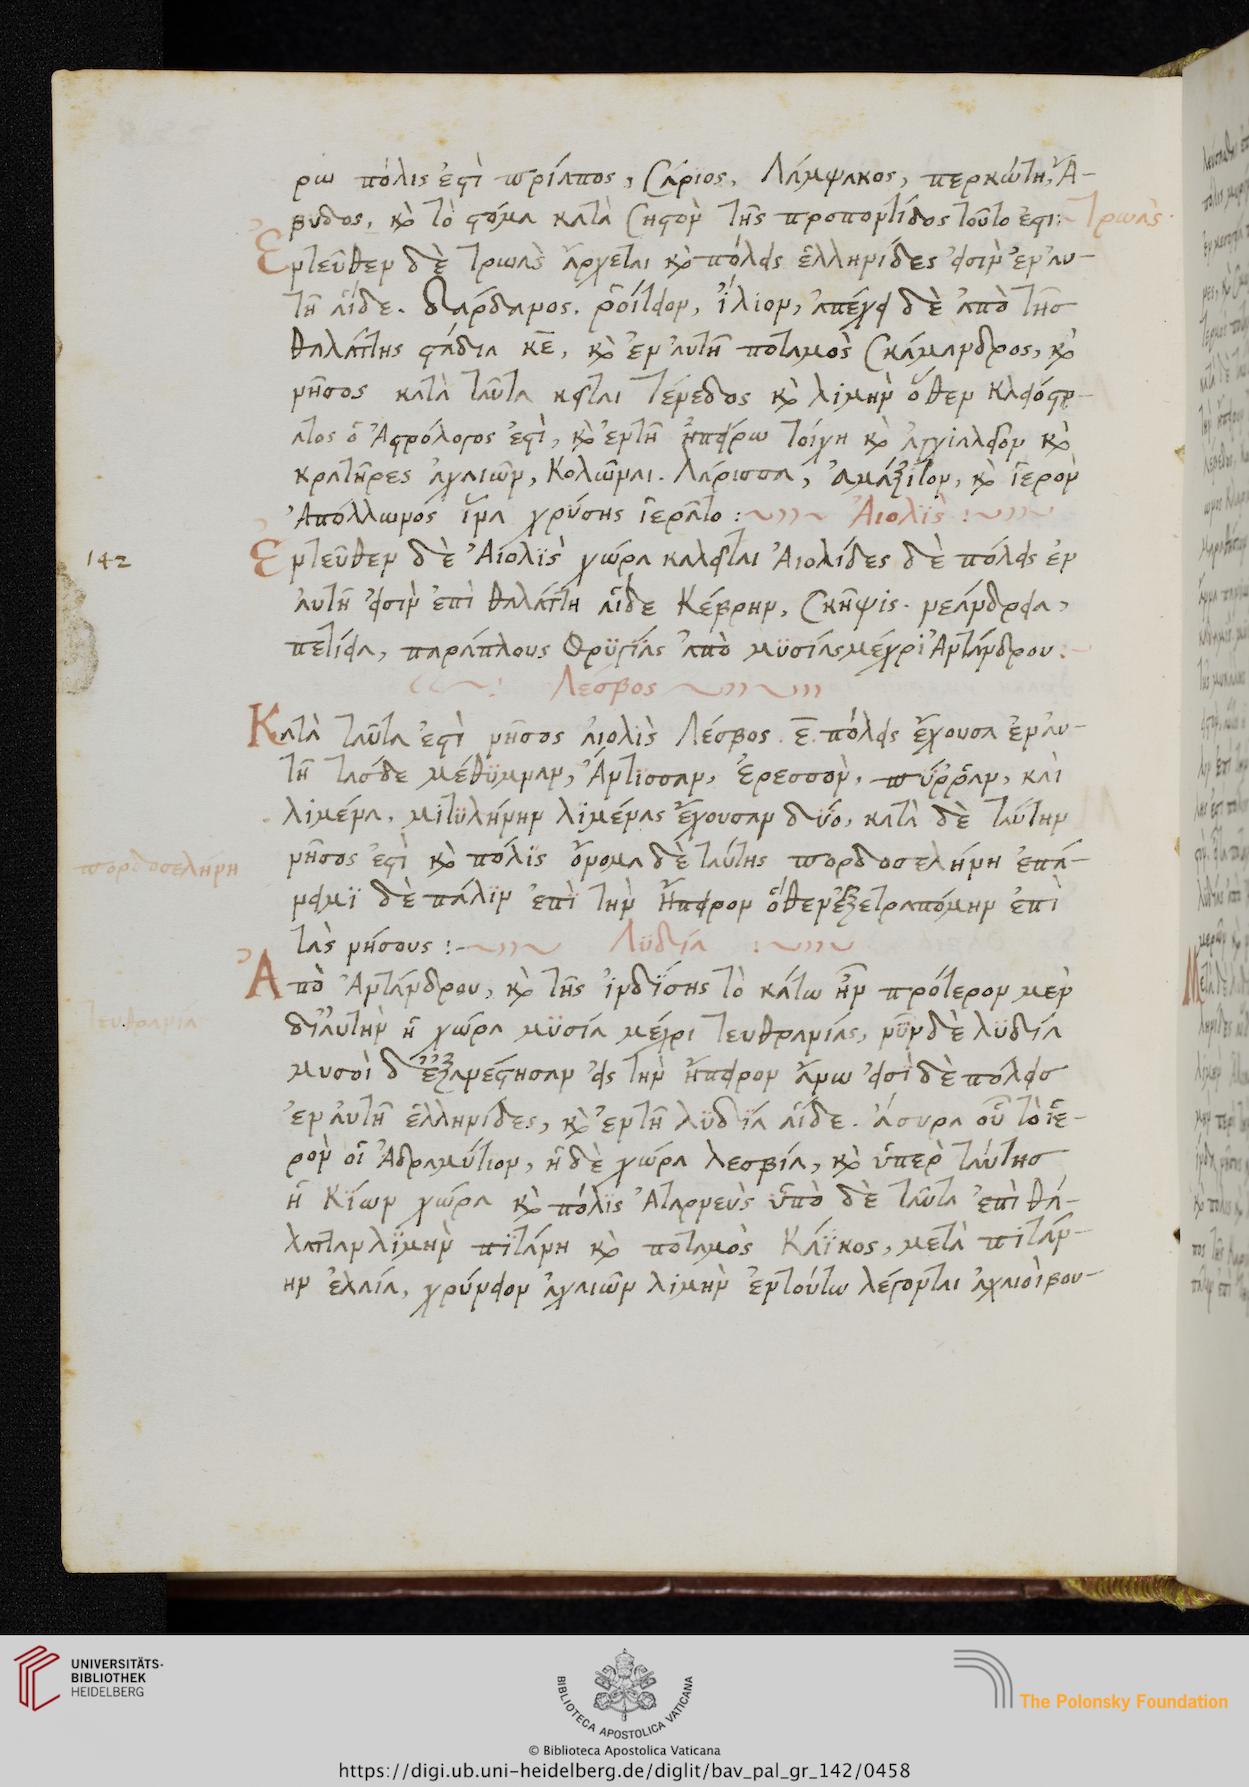 ρω πόλις ἐστὶ πρίαπος, Cάριος, Λάμψακος, περκώτη, Ἄ-
βυδος, καὶ τὸ στόμα κατὰ Cηστὸν τῆς προποντίδος τοῦτο ἐστι: Τρωὰς
Ἐντεῦθεν δὲ τρωὰς ἄρχεται καὶ πόλεις ἑλληνίδες εἰσὶν ἐν αυ-
τῆ αἵδε. δάρδανος. ῥοίτειον, ἴλιον, ἀπέχει δὲ ἀπὸ τῆς
θαλάττης στάδια κε, καὶ ἐν αὐτῆ ποταμὸς Cκάμανδρος, καὶ
νῆσος κατὰ ταῦτα κεῖται τένεδος καὶ λιμὴν ὅθεν κλεόστρ-
ατος ὁ Ἀστρόλογος ἐστὶ, καὶ ἐν τῆ ἠπείρω τοίγη καὶ ἀγχιαλεῖον καὶ
κρατῆρες ἀχαιῶν, Κολῶναι. Λάρισσα, ἁμάξιτον, καὶ ἱερὸν
Ἀπόλλωνος ἵνα χρύσης ἱερᾶτο : Αἰολῒς :
142
Ἐντεῦθεν δὲ Αἰολῒς χώρα καλεῖται Αἰολίδες δὲ πόλεις ἐν
αὐτῆ εἰσὶν ἐπὶ θαλάττη αἵδε Κέβρην, Cκῆψις. νεάνδρεια,
πετίεια, παράπλους Φρϋγίας ἀπὸ μϋσίας μέχρι Ἀντάνδρου:
Λέσβος
Κατὰ ταῦτα ἐστὶ νῆσος αἰολὶς Λέσβος. ε πόλεις ἔχουσα ἐν αυ-
τῆ τασδε μέθϋμναν, Ἄντϊσσαν, Ἐρεσσὸν, πύῤῥαν, καὶ
λιμένα, μιτϋλήνην λϊμένας ἔχουσαν δϋο, κατὰ δὲ ταύτην
νῆσος ἐστὶ καὶ πόλϊς ὄνομα δὲ ταύτης πορδοσελήνη ἐπά-
πορδοσελήνη
νειμϊ δὲ πάλϊν ἐπὶ τὴν ἤπειρον ὅθεν ἐξετραπόμην ἐπὶ
τὰς νήσους :- Λϋδία :
Ἀπὸ Ἀντάνδρου, καὶ τῆς ἰνδΐσης τὸ κάτω ἦν πρότερον μὲν
τευθρανία
δι αὐτὴν ἡ χώρα μϋσία μέχρι τευθρανίας, νῦν δὲ λϋδία
μυσοὶ δ ἐξανέστησαν εἰς τὴν ἤπειρον ἄνω εἰσὶ δὲ πόλεις
ἐν ἀυτῆ ἑλληνίδες, καὶ ἐν τῆ λϋδϊα αἵδε. ἄσυρα οὗ τὸ ἱε-
ρὸν οἷ Ἀδραμύτιον, ἡ δὲ χώρα λεσβία, καὶ ὑπὲρ ταύτης
ἡ Κΐων χώρα καὶ πόλϊς Ἀταρνεὺς ὑπὸ δὲ ταῦτα ἐπὶ θά-
λατταν λϊμὴν πϊτάνη καὶ ποταμὸς Κάϊκος, μετὰ πιτάν-
ην ἐλαία, γρύνειον ἀχαιῶν λιμὴν ἐν τούτω λέγονται ἀχαιοὶ βου-
UNIVERSITÄTS-
BIBLIOTHEK
HEIDELBERG
BIBLIOTECA APOSTOLICA VATICANA
The Polonsky Foundation
© Biblioteca Apostolica Vaticana
https://digi.ub.uni-heidelberg.de/diglit/bav_pal_gr_142/0458